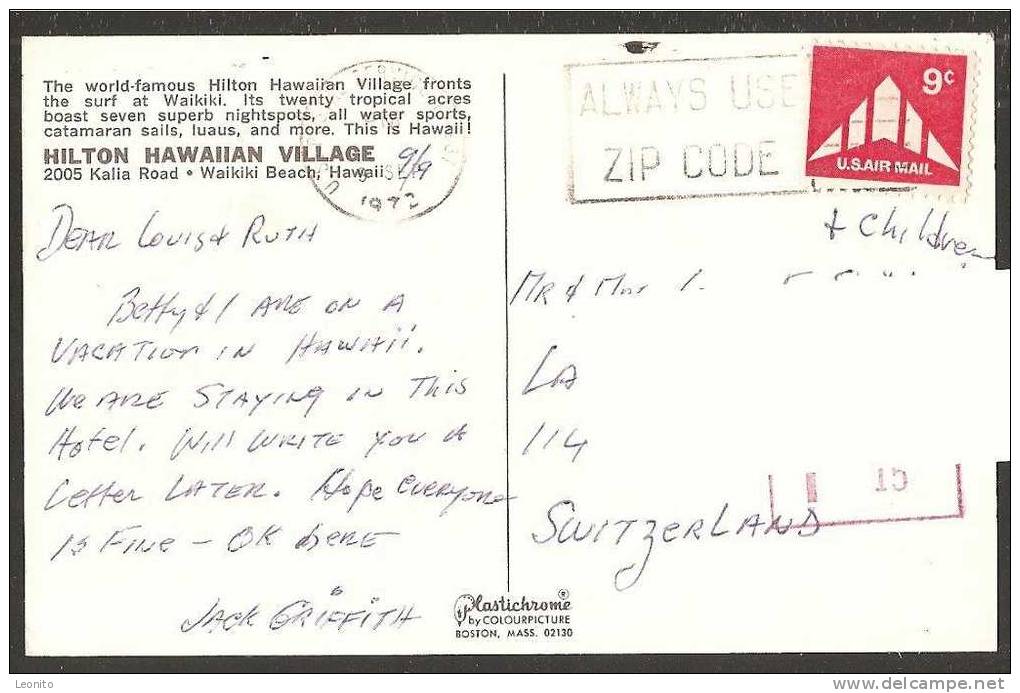 The world-famous Hilton Hawaiian Village fronts
the surf at Waikiki. Its twenty tropical acres
boast seven superb nightspots, all water sports,
catamaran sails, luaus, and more. This is Hawaii!
HILTON HAWAIIAN VILLAGE
2005 Kalia Road • Waikiki Beach, Hawaii
9/9
1972
DEAR LOUIS & RUTH
Betty & I ARE ON A
VACATION IN HAWAII.
We ARE STAYING IN THIS
Hotel. Will WRITE you A
Letter LATER. Hope everyone
IS FINE – OK HERE
JACK GRIFFITH
ALWAYS USE
ZIP CODE
9¢
U.S. AIR MAIL
+ Children
MR & Mrs
LA
114
SWITZERLAND
15
Plastichrome®
by COLOURPICTURE
BOSTON, MASS. 02130
Leonito
www.delcampe.net